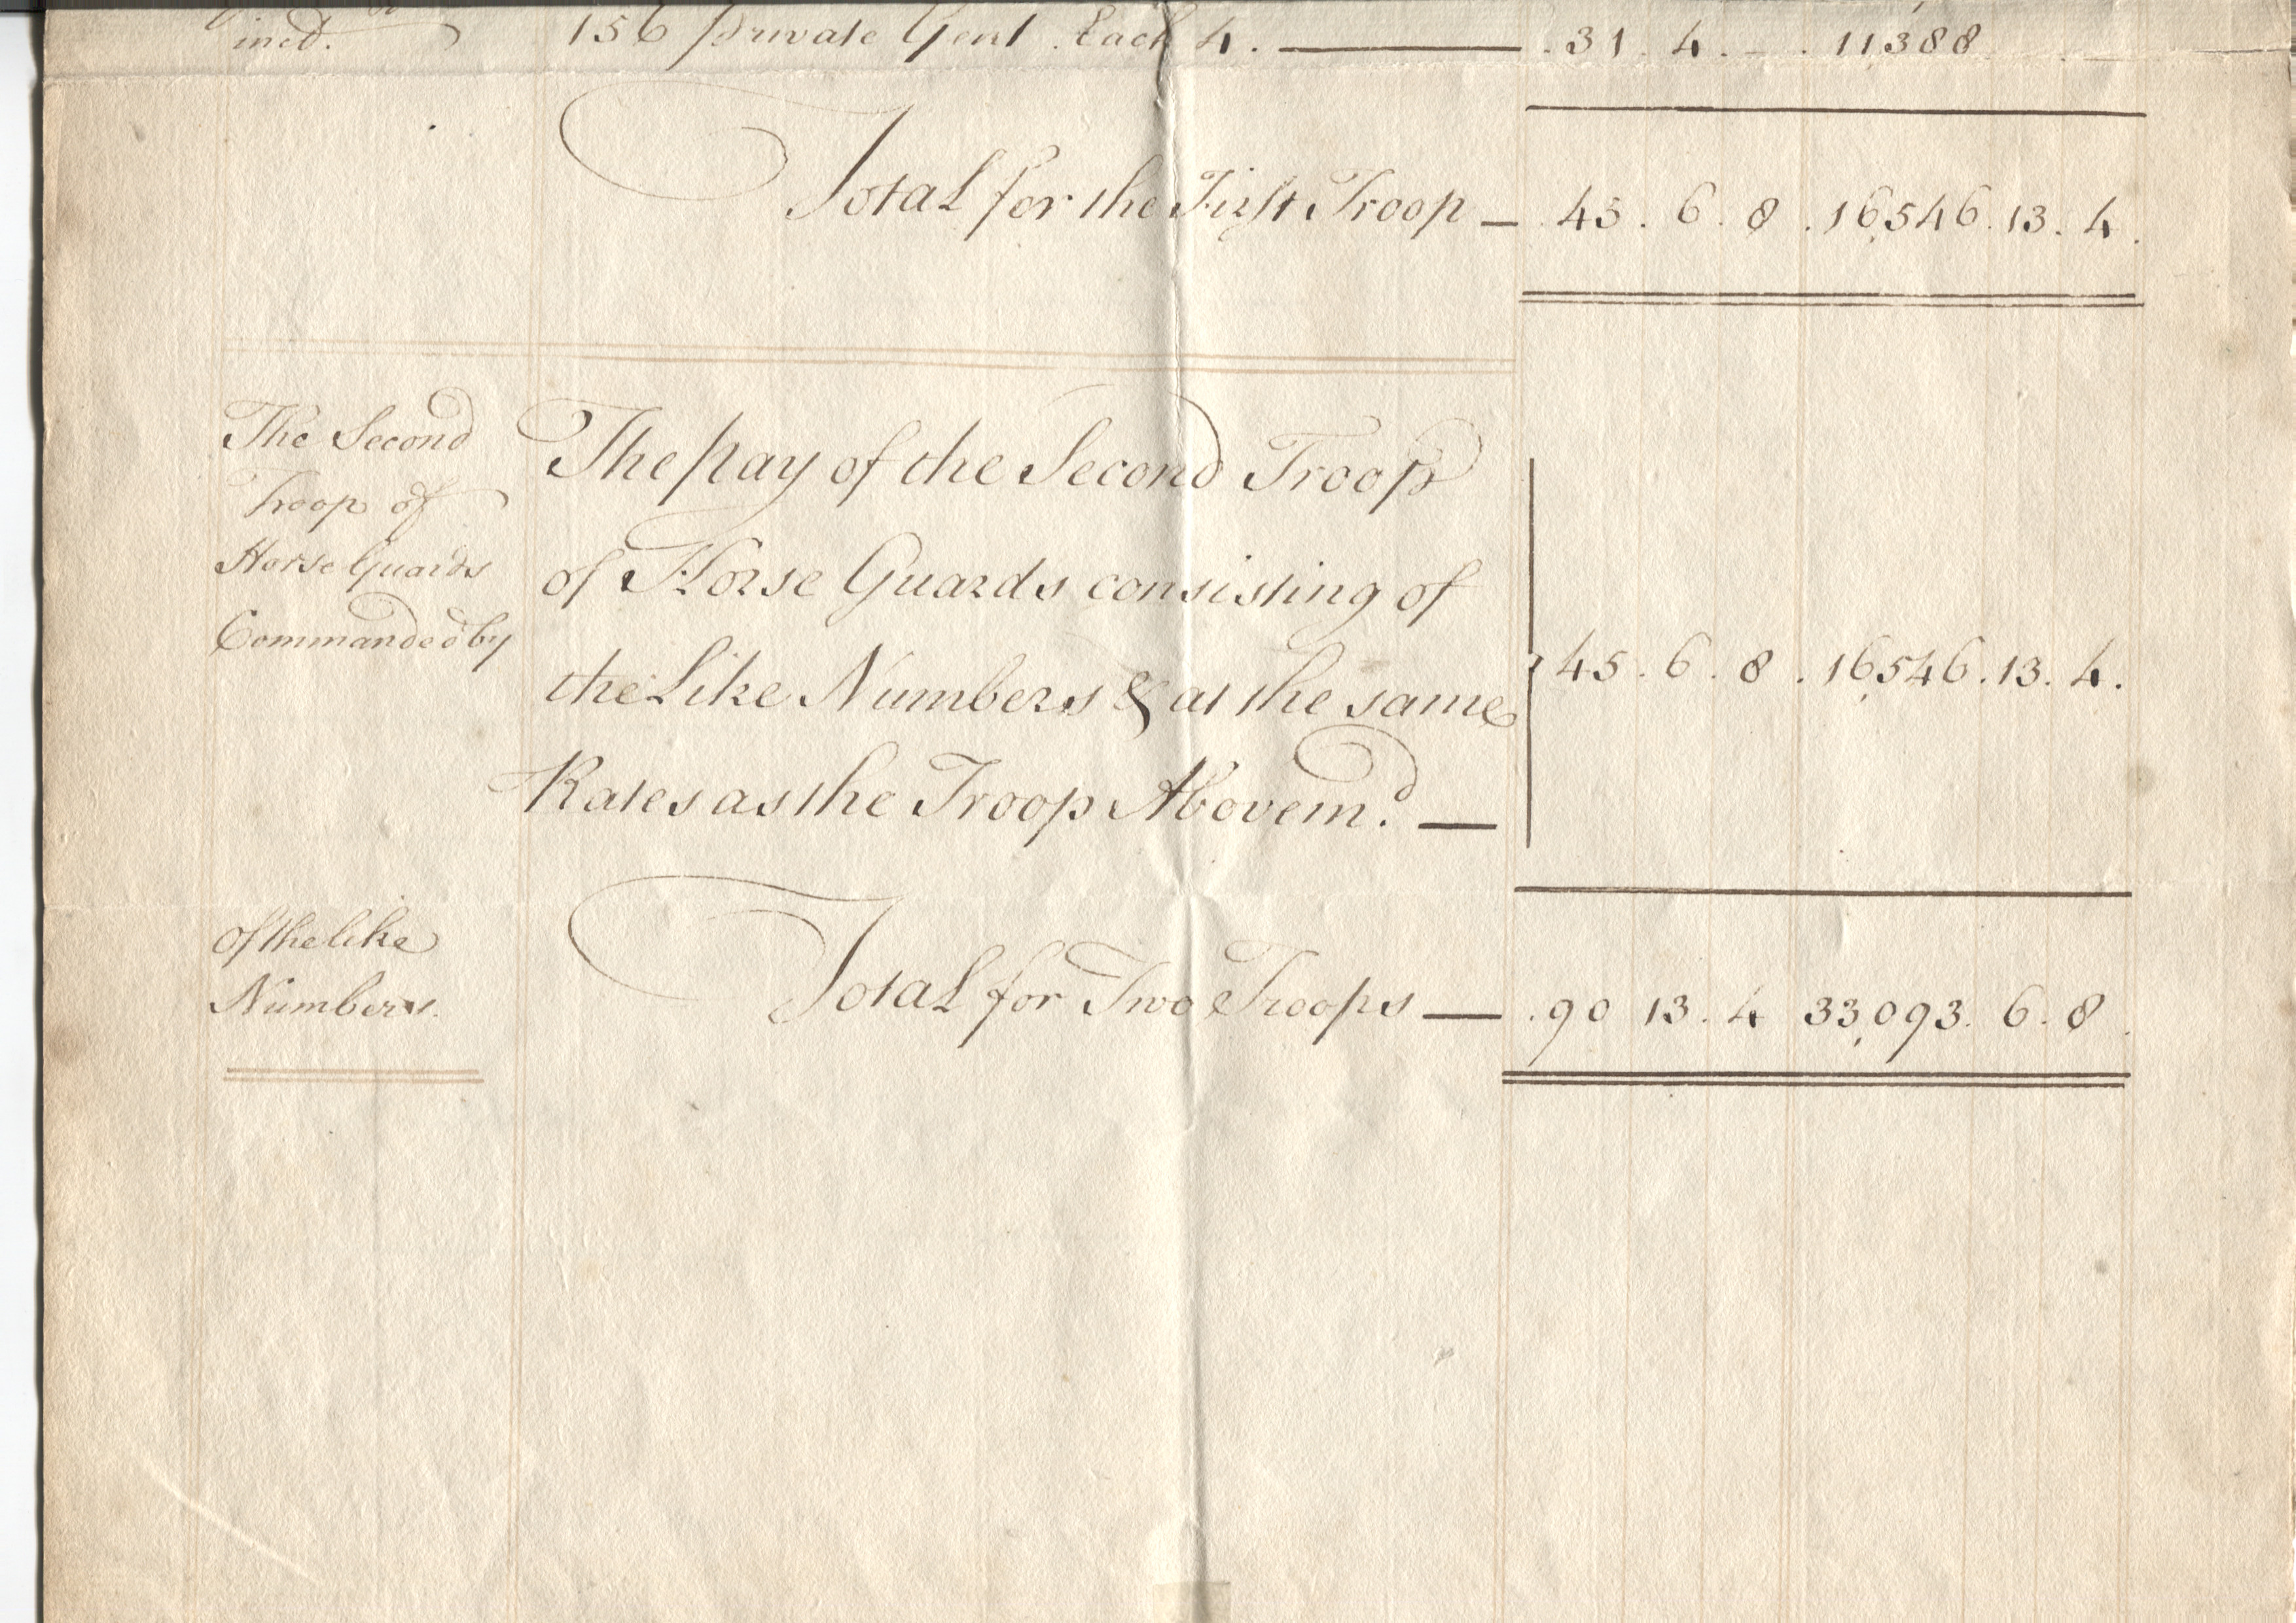 incd. 156 private Gent. Each 4. — .31. 4. - . 11388
Total for the First Troop — 45. 6. 8. 16,546. 13. 4.
The Second
Troop of
Horse Guards
Commanded by
The pay of the Second Troop
of Horse Guards consisting of
the Like Numbers & at the same
Rates as the Troop Abovem.d —
45. 6. 8. 16,546. 13. 4.
Of the like
Numbers.
Total for Two Troops — .90 13. 4 33,093. 6. 8.